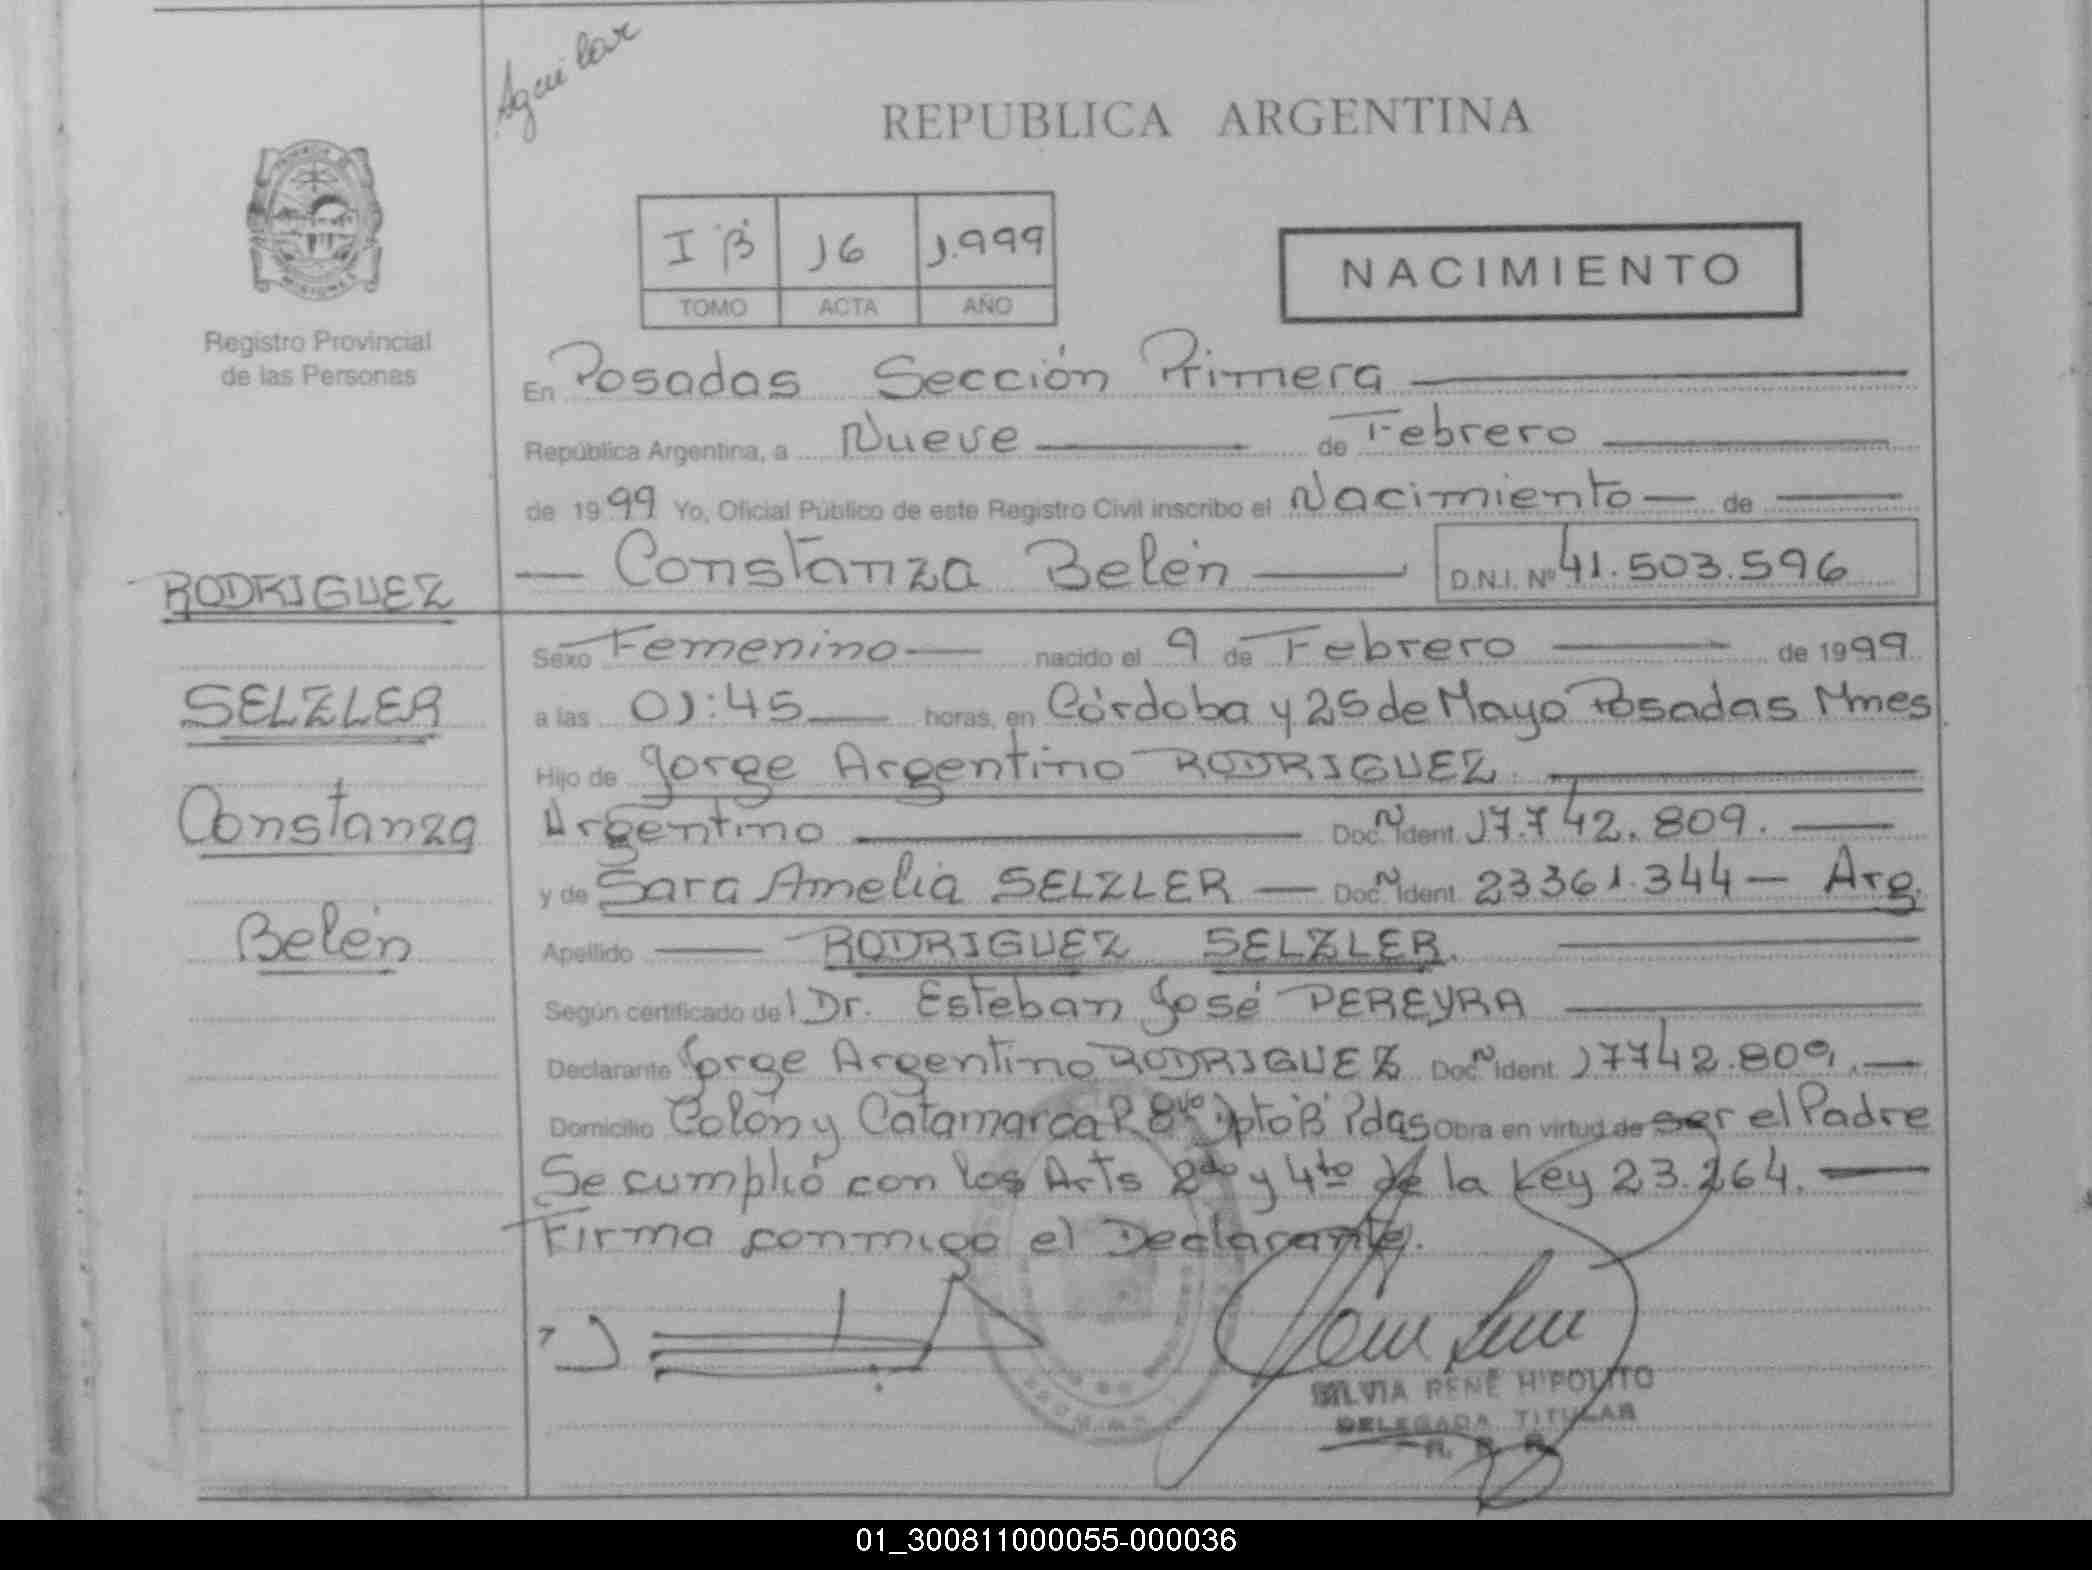 Aguilar
REPUBLICA ARGENTINA
I "B" 16 1.999
TOMO ACTA AÑO
NACIMIENTO
Registro Provincial
de las Personas
En Posadas Sección Primera
República Argentina, a Nueve de Febrero
de 1999 Yo, Oficial Público de este Registro Civil inscribo el Nacimiento de
Constanza Belén D.N.I. Nº 41.503.596
RODRIGUEZ
SELZLER
Constanza
Belén
Sexo Femenino nacido el 9 de Febrero de 1999
a las 01:45 horas, en Córdoba y 25 de Mayo Posadas Mnes
Hijo de Jorge Argentino RODRIGUEZ.
Argentino Doc. N Ident. 17.742.809.
y de Sara Amelia SELZLER Doc. N Ident. 23361.344 Arg.
Apellido RODRIGUEZ SELZLER.
Según certificado del Dr. Esteban José PEREYRA
Declarante Jorge Argentino RODRIGUEZ Doc. N Ident. 17742.809.
Domicilio Colón y Catamarca P. 8vo Dpto "B" Pdas Obra en virtud de ser el Padre
Se cumplió con los Arts 2do y 4to de la Ley 23.264.
Firma conmigo el Declarante.
SILVIA RENÉ HIPOLITO
DELEGADA TITULAR
01_300811000055-000036